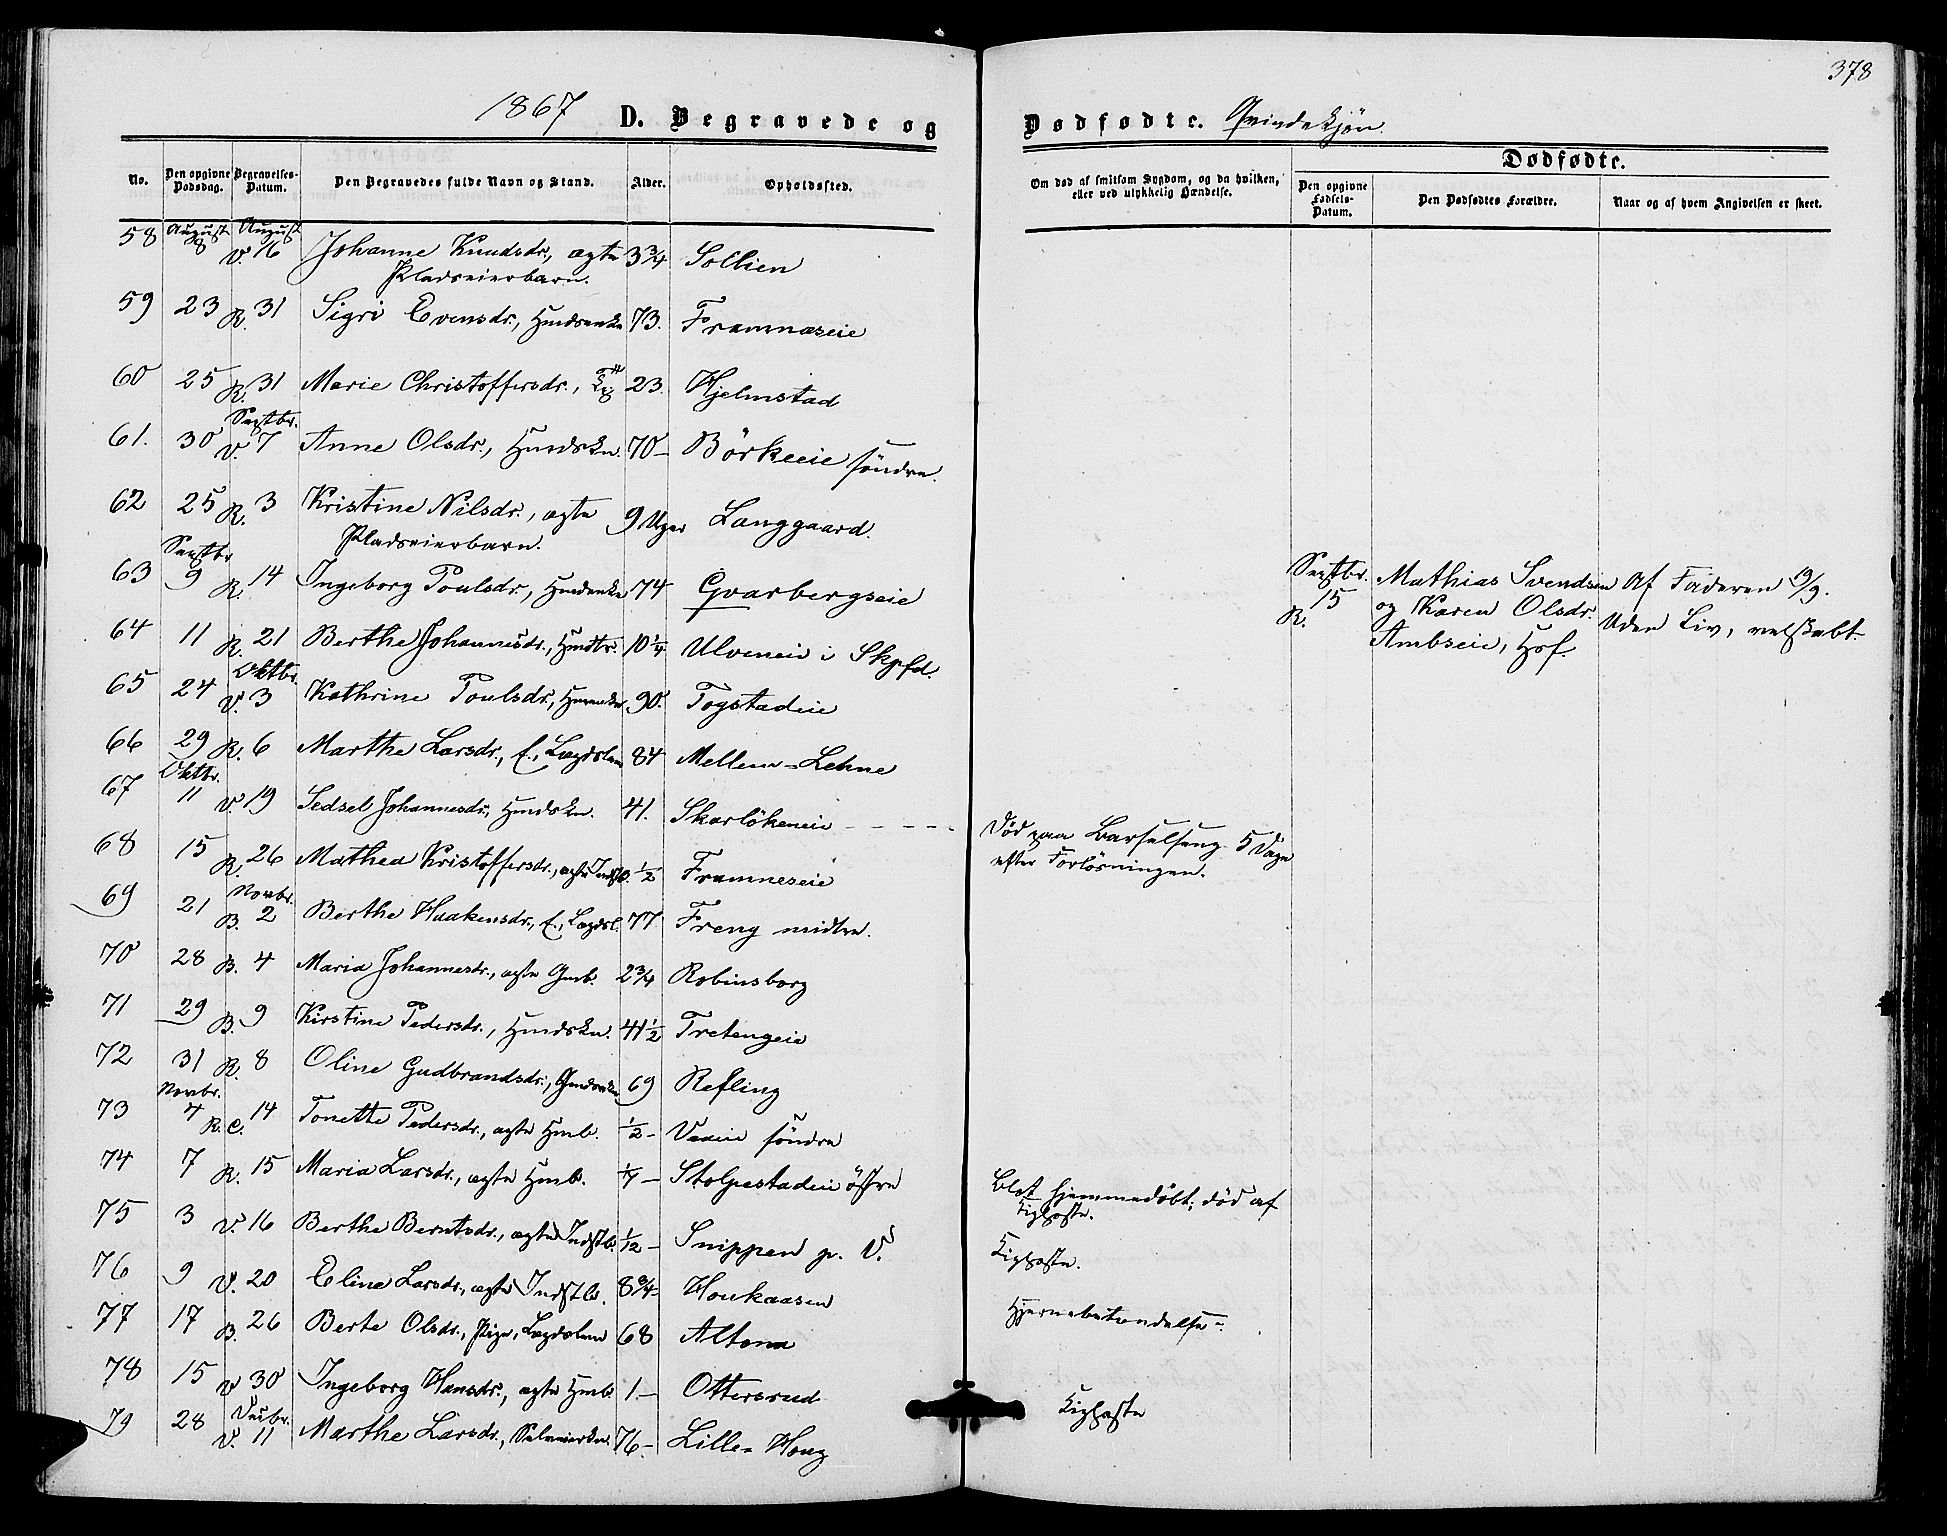 378
1867 D. Begravede og Dødfødte. Qvindekjøn.
No. Den opgivne Dødsdag. Begravelses-Datum. Den Begravedes fulde Navn og Stand. Alder. Opholdssted.
Om død af smitsom Sygdom, og da hvilken, eller ved ulykkelig Hændelse.
Dødfødte.
Den opgivne Fødsels-Datum. Den Dødfødtes Forældre. Naar og af hvem Angivelsen er skeet.
August August
58 8 V. 16 Johanne Knudsdr., ægte 3 3/4 Sollien
Pladseierbarn.
59 23 R. 31 Sigri Evensdr., Husmdsenke 73. Framnæseie
60 25 R. 31 Marie Christoffersdr., 23. Hjelmstad
Septbr.
61. 30 V. 7 Anne Olsdr., Husmdskn. 70 – Börkeeie söndre.
62 25 R. 3 Kristine Nilsdr., ægte 9 Uger Langgaard.
Pladseierbarn.
Septbr
63 9 R. 14 Ingeborg Poulsdr., Hmdenke 74 Gvarbergseie
Septbr. 15 R. Mathias Svendsen Af Faderen 19/9.
og Karen Olsdr. Uden Liv, velskabt
Ambseie, Hof.
64 11 R. 21 Berthe Johannesdr., Hmdbr. 10 1/4 Ulveneie i Skpfd.
Oktbr.
65 24 V. 3 Kathrine Poulsdr., 90. Togstadeie
66 29 R. 6 Marthe Larsdr., f., Lægdslem 84 Mellem-Lehne
Oktbr.
67 11 V. 19 Sedsel Johannesdr., Hmdskn. 41. Skarlökeneie - - - - -
Död paa Barselseng 5 Dage
efter Forlösningen.
68 15 R. 26 Mathea Kristoffersdr., ægte 1/2 Framneseie
Novbr.
69 21 B. 2 Berthe Haakensdr., f., Lægdsl. 77 Freng midtre.
70 28 B. 4 Maria Johannesdr., ægte Gmb. 2 3/4 Robinsborg
71 29 B. 9 Kirstine Pedersdr., Hmdskn. 41 1/2 Tretengeie
72 31 R. 8 Oline Gudbrandsdr., Gmdenke 69 Refling
Novbr.
73 4 R. C. 14 Tonette Pedersdr., ægte Hmb. 1/2 – söndre
74 7 R. 15 Maria Larsdr., ægte Hmb. – Stolpestadeie östre
Blot hjemmedöbt; död af
Kighoste.
75 3 V. 16 Berthe Berntsdr., ægte Indstb. 1/12 – Snippen p. V.
Kighoste.
76 9 V. 20 Eline Larsdr., ægte Indstb. 8 3/4 – Houkaasen
77 17 B. 26 Berte Olsdr., Pige, Lægdslem 68 Altona
Hjernebetændelse
78 15 V 30 Ingeborg Hansdr., ægte Hmb 1. – Ottersrud
Kighoste
Decbr.
79 28 V. 11 Marthe Larsdr., Selveierkn. 76 – Lille-Houg